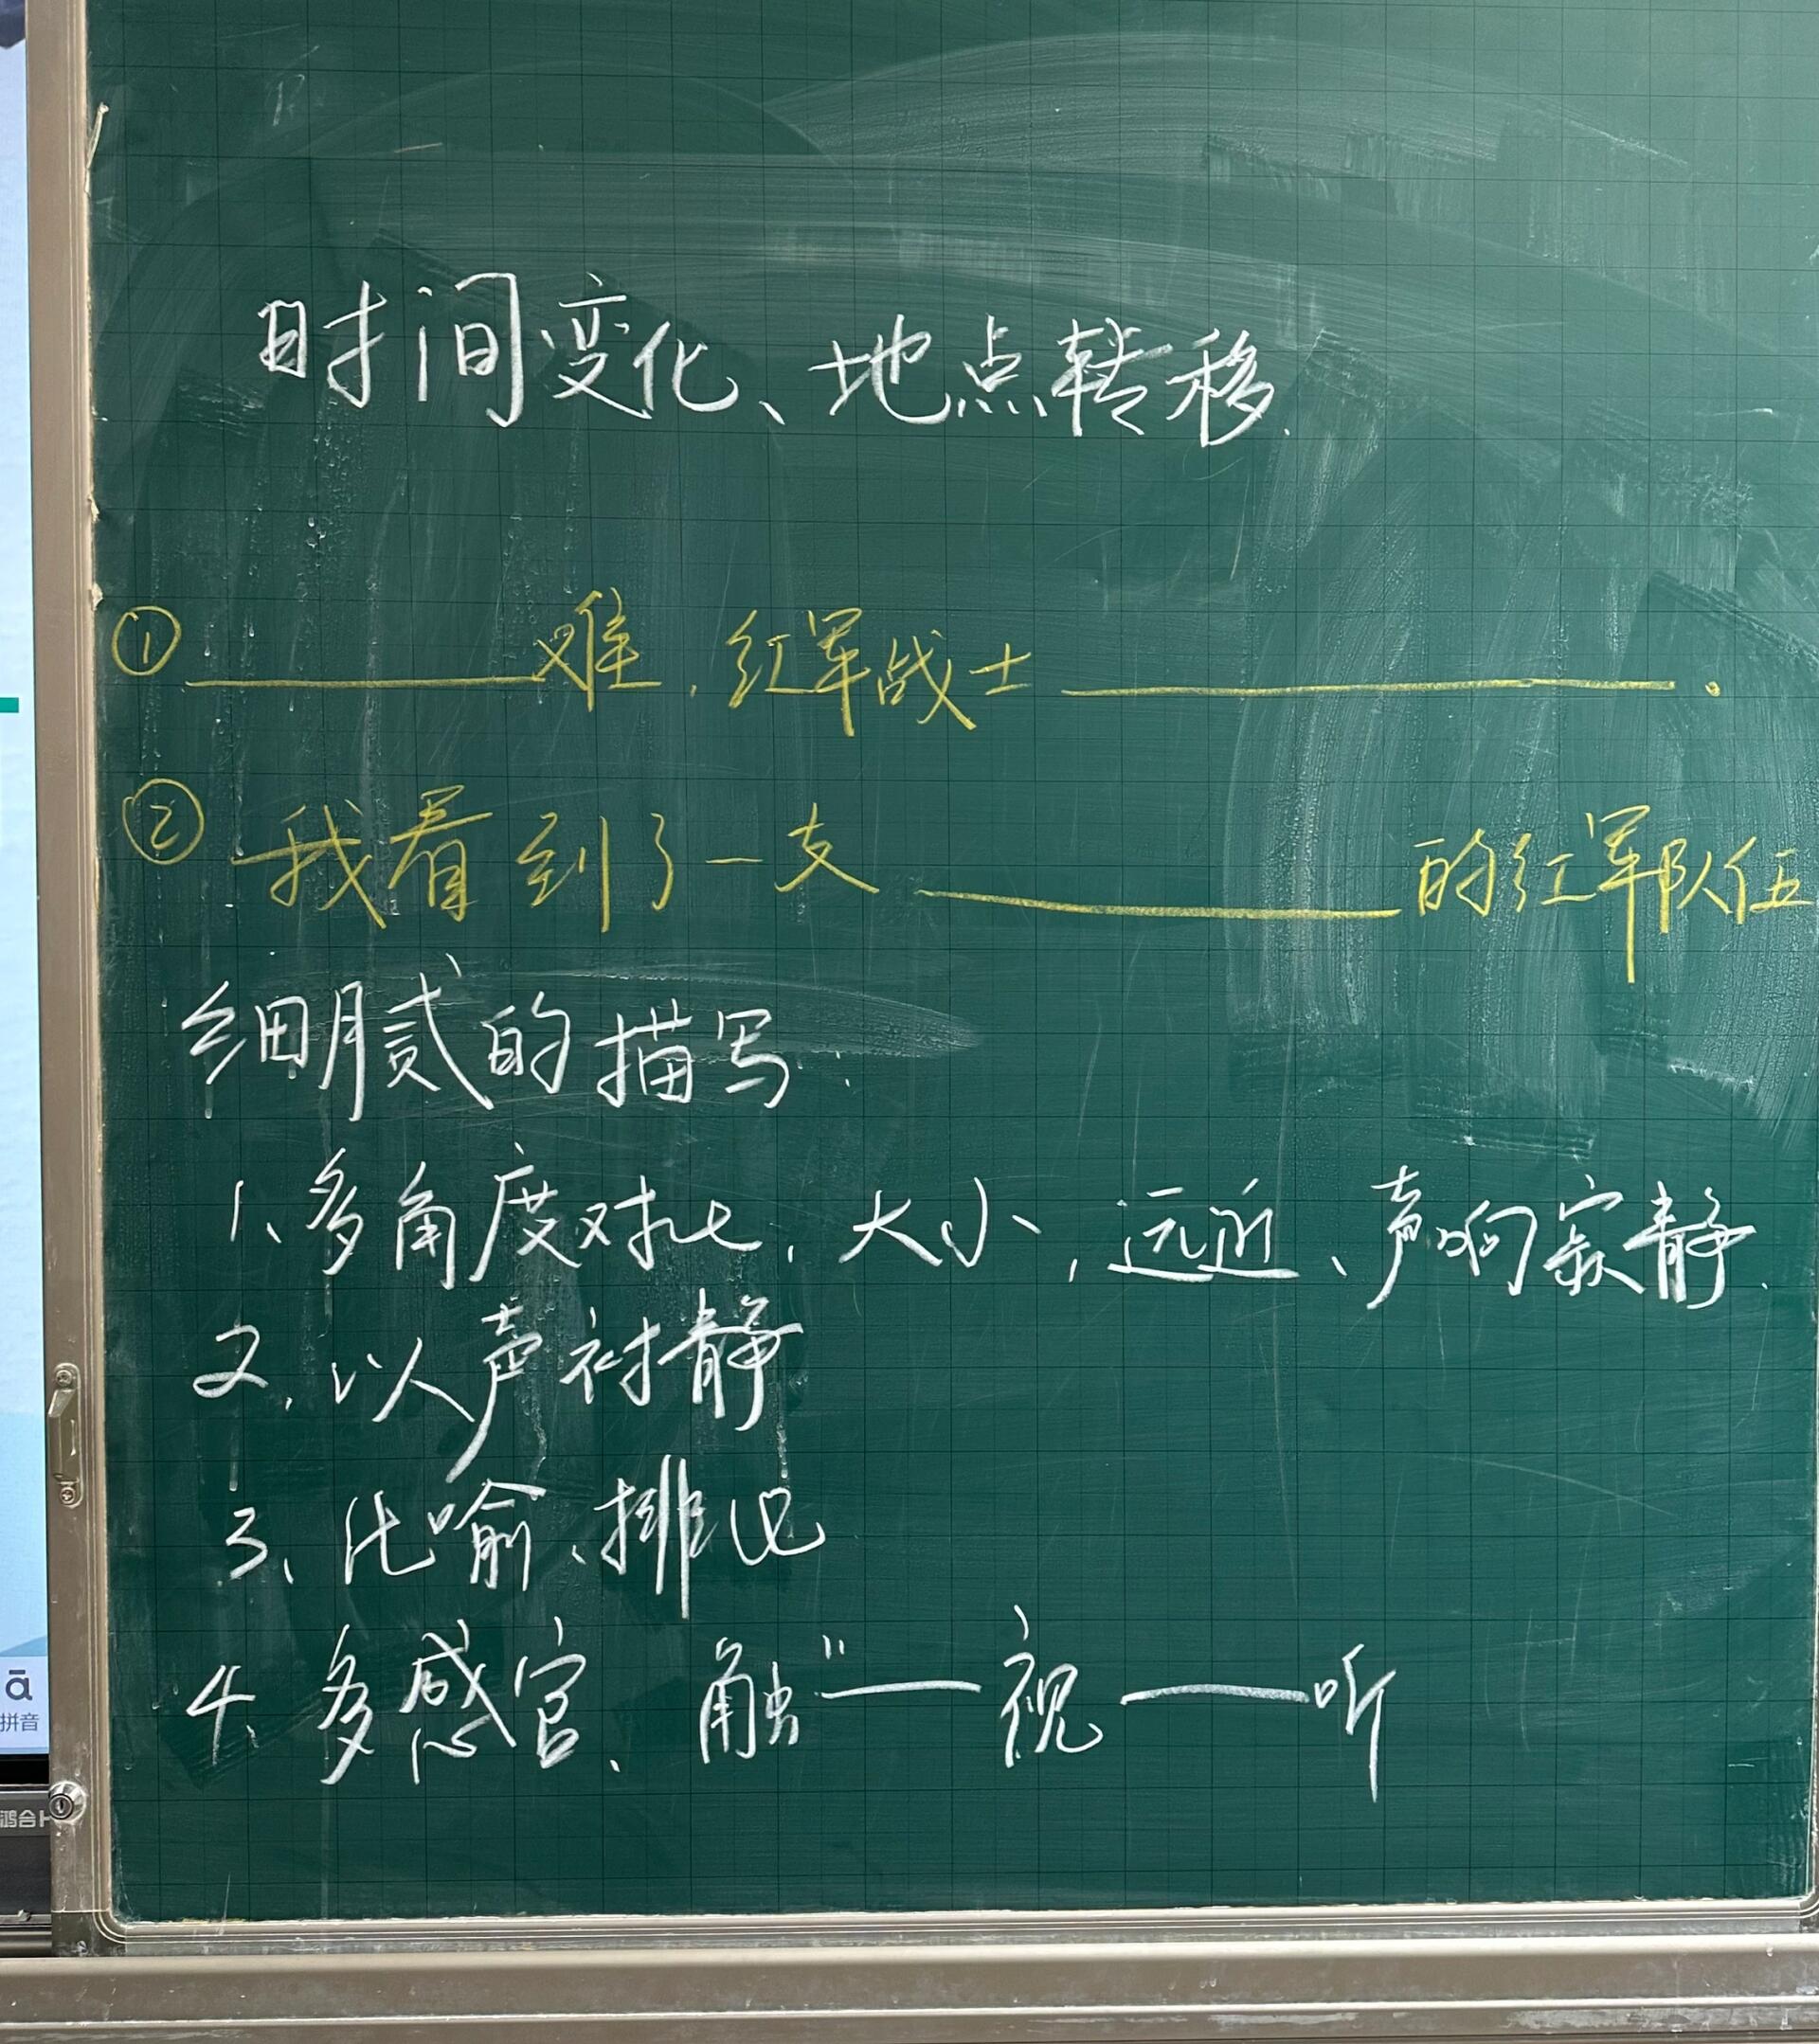 时间变化、地点转移.
① ________难,红军战士________.
② 我看到了一支________的红军队伍
细腻的描写.
1、多角度对比,大小,远近、声响寂静.
2、以声衬静
3、比喻、排比
4、多感官、触"——视——听
ā
拼音
鸿合H